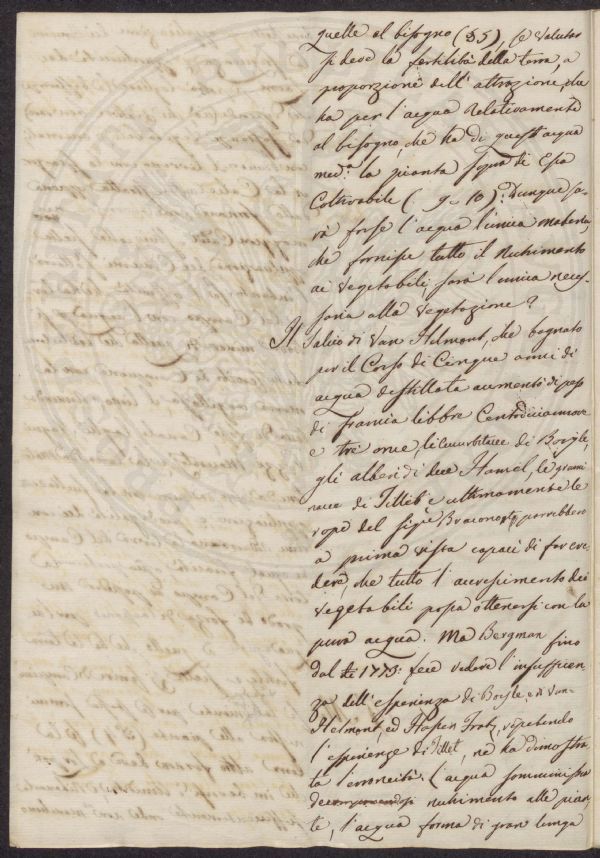 quelle al bisogno (35), se valutar
si deve la fertilità della terra, a
proporzione dell'attrazione, che
ha per l'acqua relativamente
al bisogno, che ha di quest'acqua
med.ª la pianta
Coltivabile ( 9.. 10). Dunque sa-
rà forse l'acqua l'unica materia,
che fornisse tutto il nutrimento
ai vegetabili, sarà l'unica neces-
saria alla vegetazione?
Il Salcio di Van Helmont, che bagnato
per il Corso di Cinque anni di
acqua distillata aumentò di peso
di libbre Centodiciannove
e tre once, li cucurbitacee di Boyle,
gli alberi di Hamel, le grami
nacee di Tillet e ultimamente le
rape del Sig.r parrebbero
a prima vista capaci di far cre-
dere, che tutto l'accrescimento dei
vegetabili possa ottenersi con la
pura acqua. Ma Bergman fino
dal 1773: fece vedere l'insuffien-
za dell'esperienza di Boyle, e di Van-
Helmont, ed Hassen Fratz, repetendo
l'esperienze di Tillet, ne ha dimostra
ta l'erroneità. L'acqua somministra
nutrimento alle pian
te, l'acqua forma di gran lunga